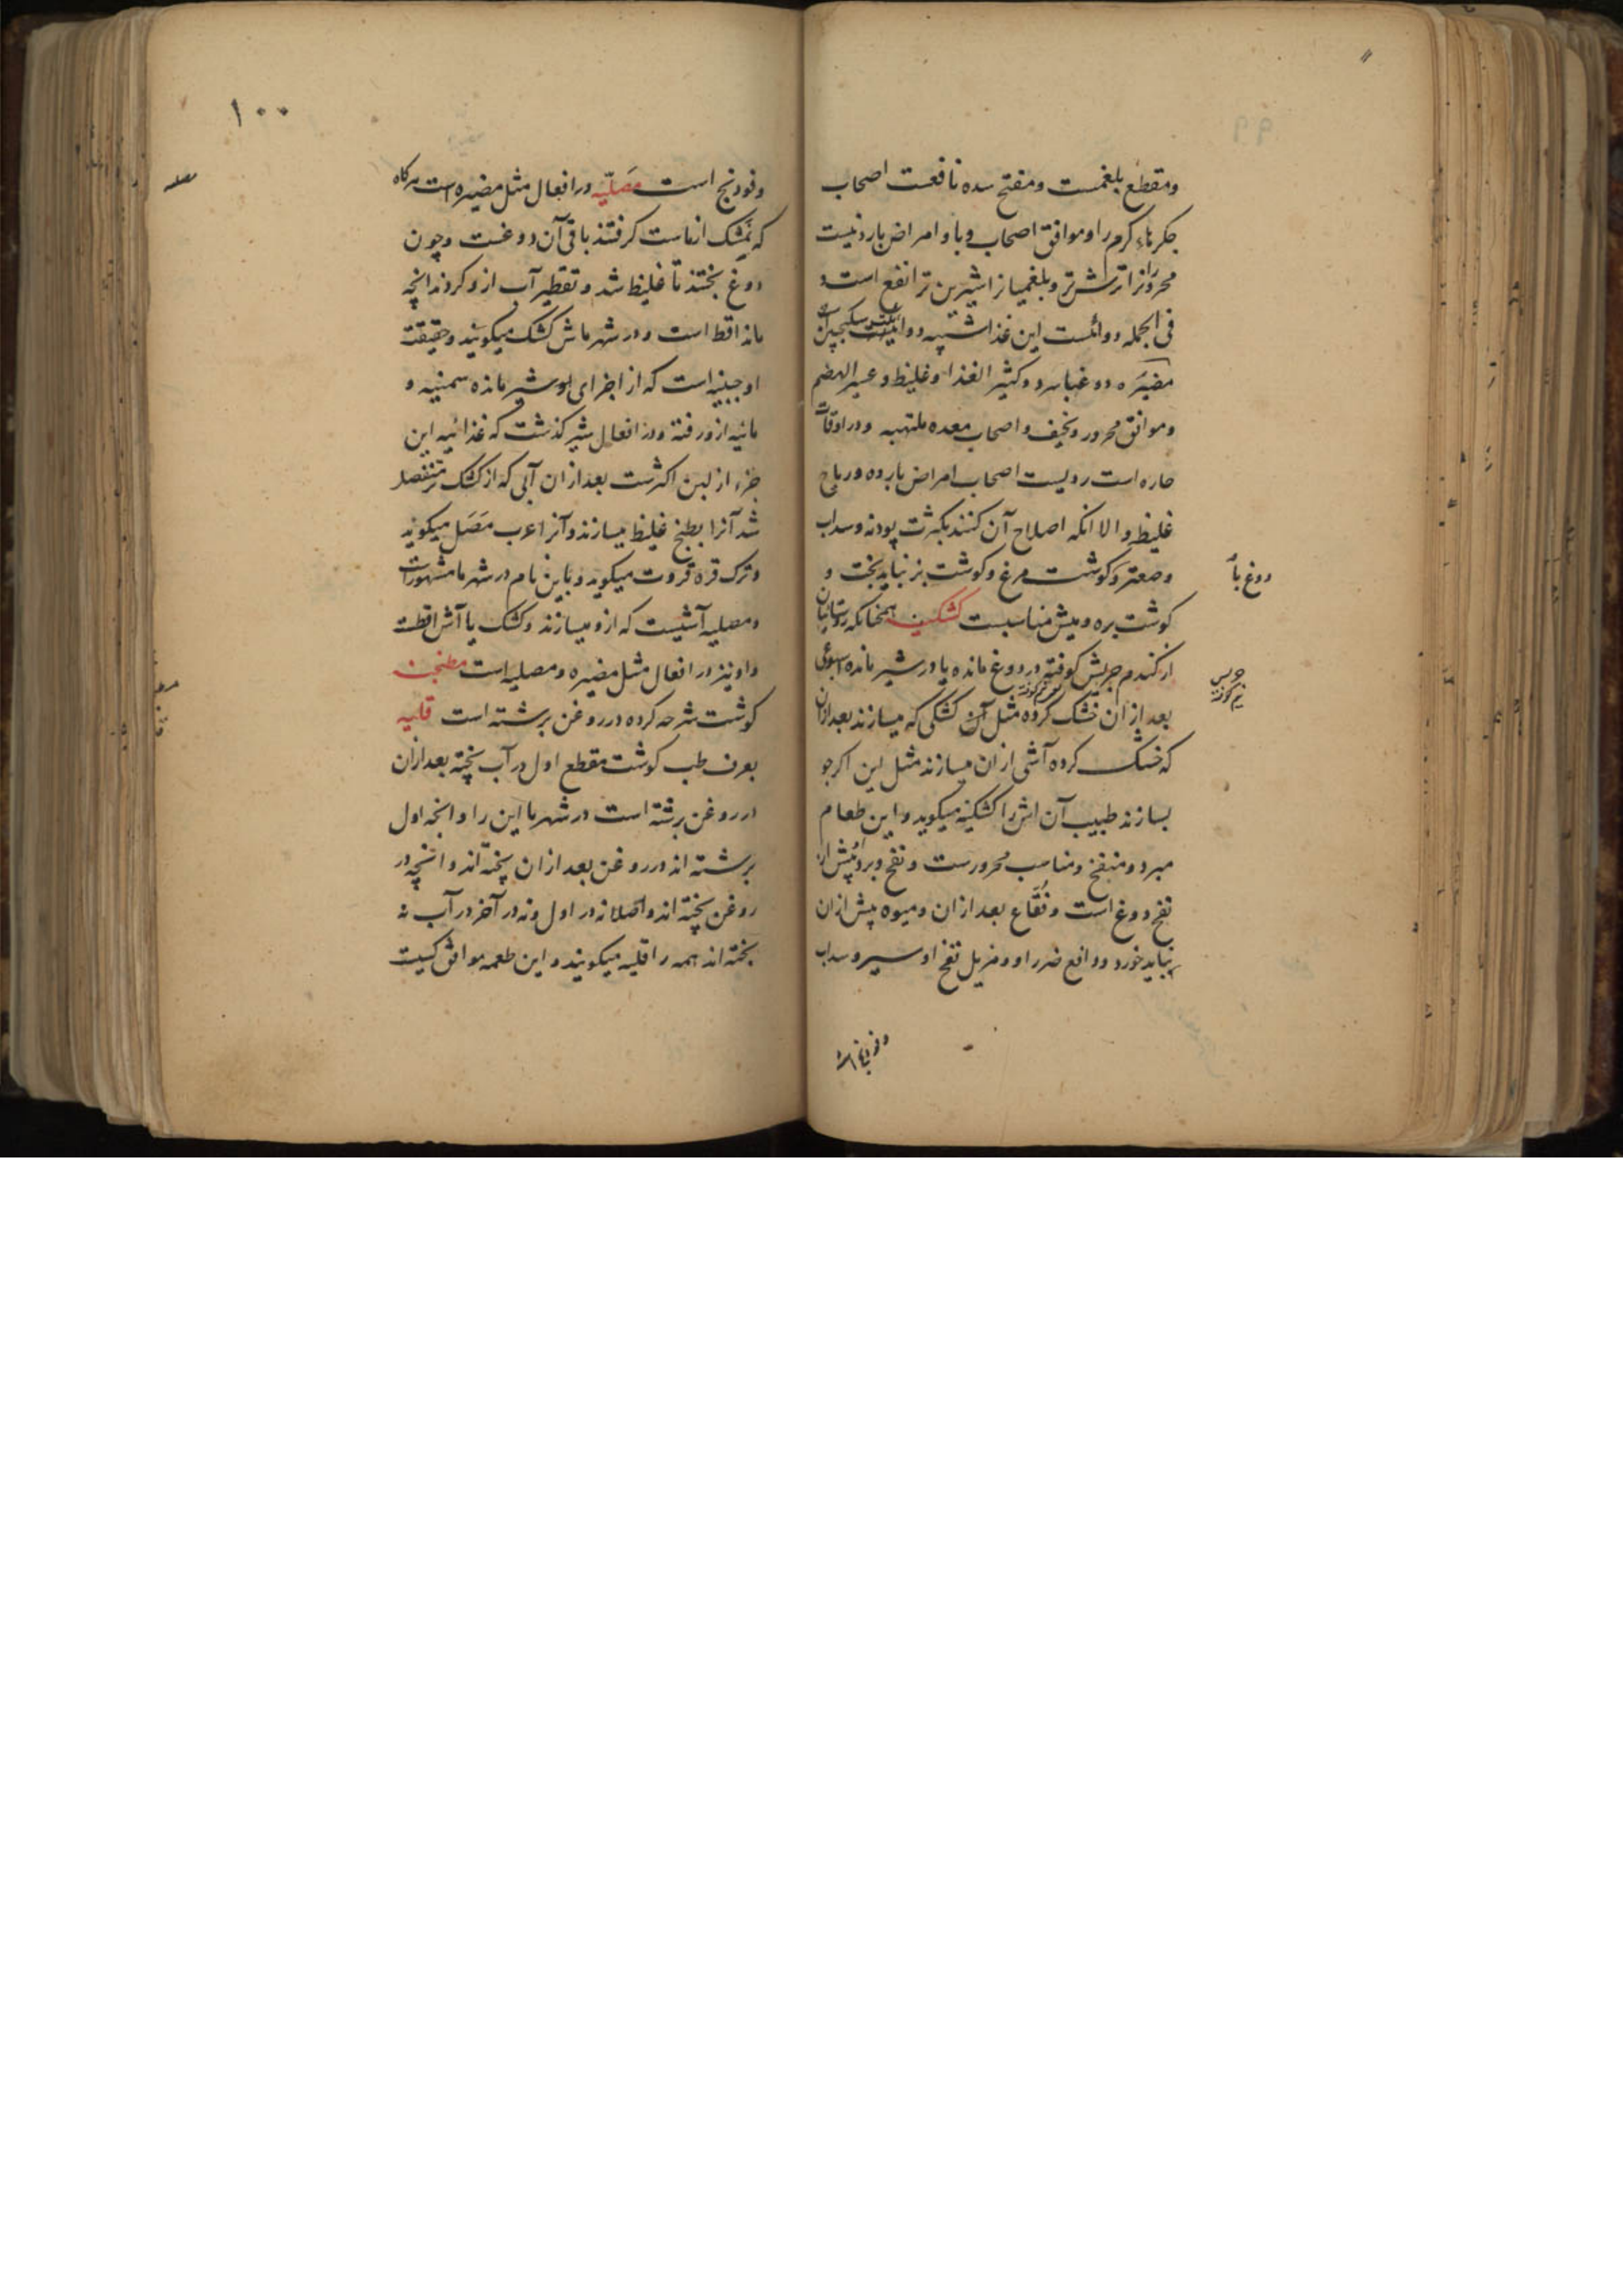 ومقطع بلغمست ومفتح سده نافعست اصحاب
جکرهاء کرم را وموافق اصحاب وبا و امراض بارد نیست
محرورانرا ترش تر وبلغمیانرا شیرین تر انفع است و
فی الجمله دوائست این غذا شبیه دوائیت سکنجبین
مضیره دوغبا سرد وکثیر الغذا وغلیظ وعسیر الهضم
وموافق محرور ونحیف واصحاب معده ملتهبه ودر اوقات
حاره است ردیست اصحاب امراض بارده وریاح
غلیظ والا انکه اصلاح آن کنند بکثرت پودنه وسداب
وصعتر وکوشت مرغ وکوشت بز نباید پخت و
دوغ با
کوشت بره ومیش مناسبست کشکینه همچنانکه روستائیان
از کندم جریش کوفته در دوغ مانده یا در شیر مانده اسبوعی
جریس
نیم کوفته
بعد از ان خشک کرده مثل آن کشکی که میسازند بعد ازان
که خشک کرده آشی از ان میسازند مثل این اکر جو
بسازند طبیب آن اش را کشکینه میکوید واین طعام
مبرد ومنفخ ومناسب محرورست ونفخ وبرد پیش از
نفخ دوغ است وفقاع بعد از ان ومیوه پیش ازان
نباید خورد ودافع ضرر او ومزیل نفخ او سیر وسداب
۱۰۰
وفودنج است مصلیه در افعال مثل مضیره است هرکاه
مصلیه
که نمشک از ماست کرفتند باقی آن دوغست وچون
دوغ پختند تا غلیظ شد وتقطیر آب ازو کردند انچه
ماند اقط است ودر شهر ماش کشک میکویند وحقیقت
او جبنیه است که از اجزای او شیر مانده سمنیه و
مائیه ازو رفته ودر افعال شیر کذشت که غذائیه این
جزء از لبن اکثرست بعد ازان آبی که از کشک تر منفصل
شد آنرا بطبخ غلیظ میسازند وآنرا عرب مَصَل میکوید
وترک قره قروت میکوید وباین نام در شهر ما مشهورات
ومصلیه آشیست که ازو میسازند وکشک با آش اقطست
واونیز در افعال مثل مضیره ومصلیه است مطنجنه
کوشت شرحه کرده در روغن برشته است قلیه
بعرف طب کوشت مقطع اول در آب پخته بعد ازان
در روغن برشته است در شهر ما این را وانچه اول
برشته اند در روغن بعد ازان پخته اند وانچه در
روغن پخته اند واصلا نه در اول ونه در آخر در آب نه
پخته اند همه را قلیه میکویند واین طعمه موافق کسیت